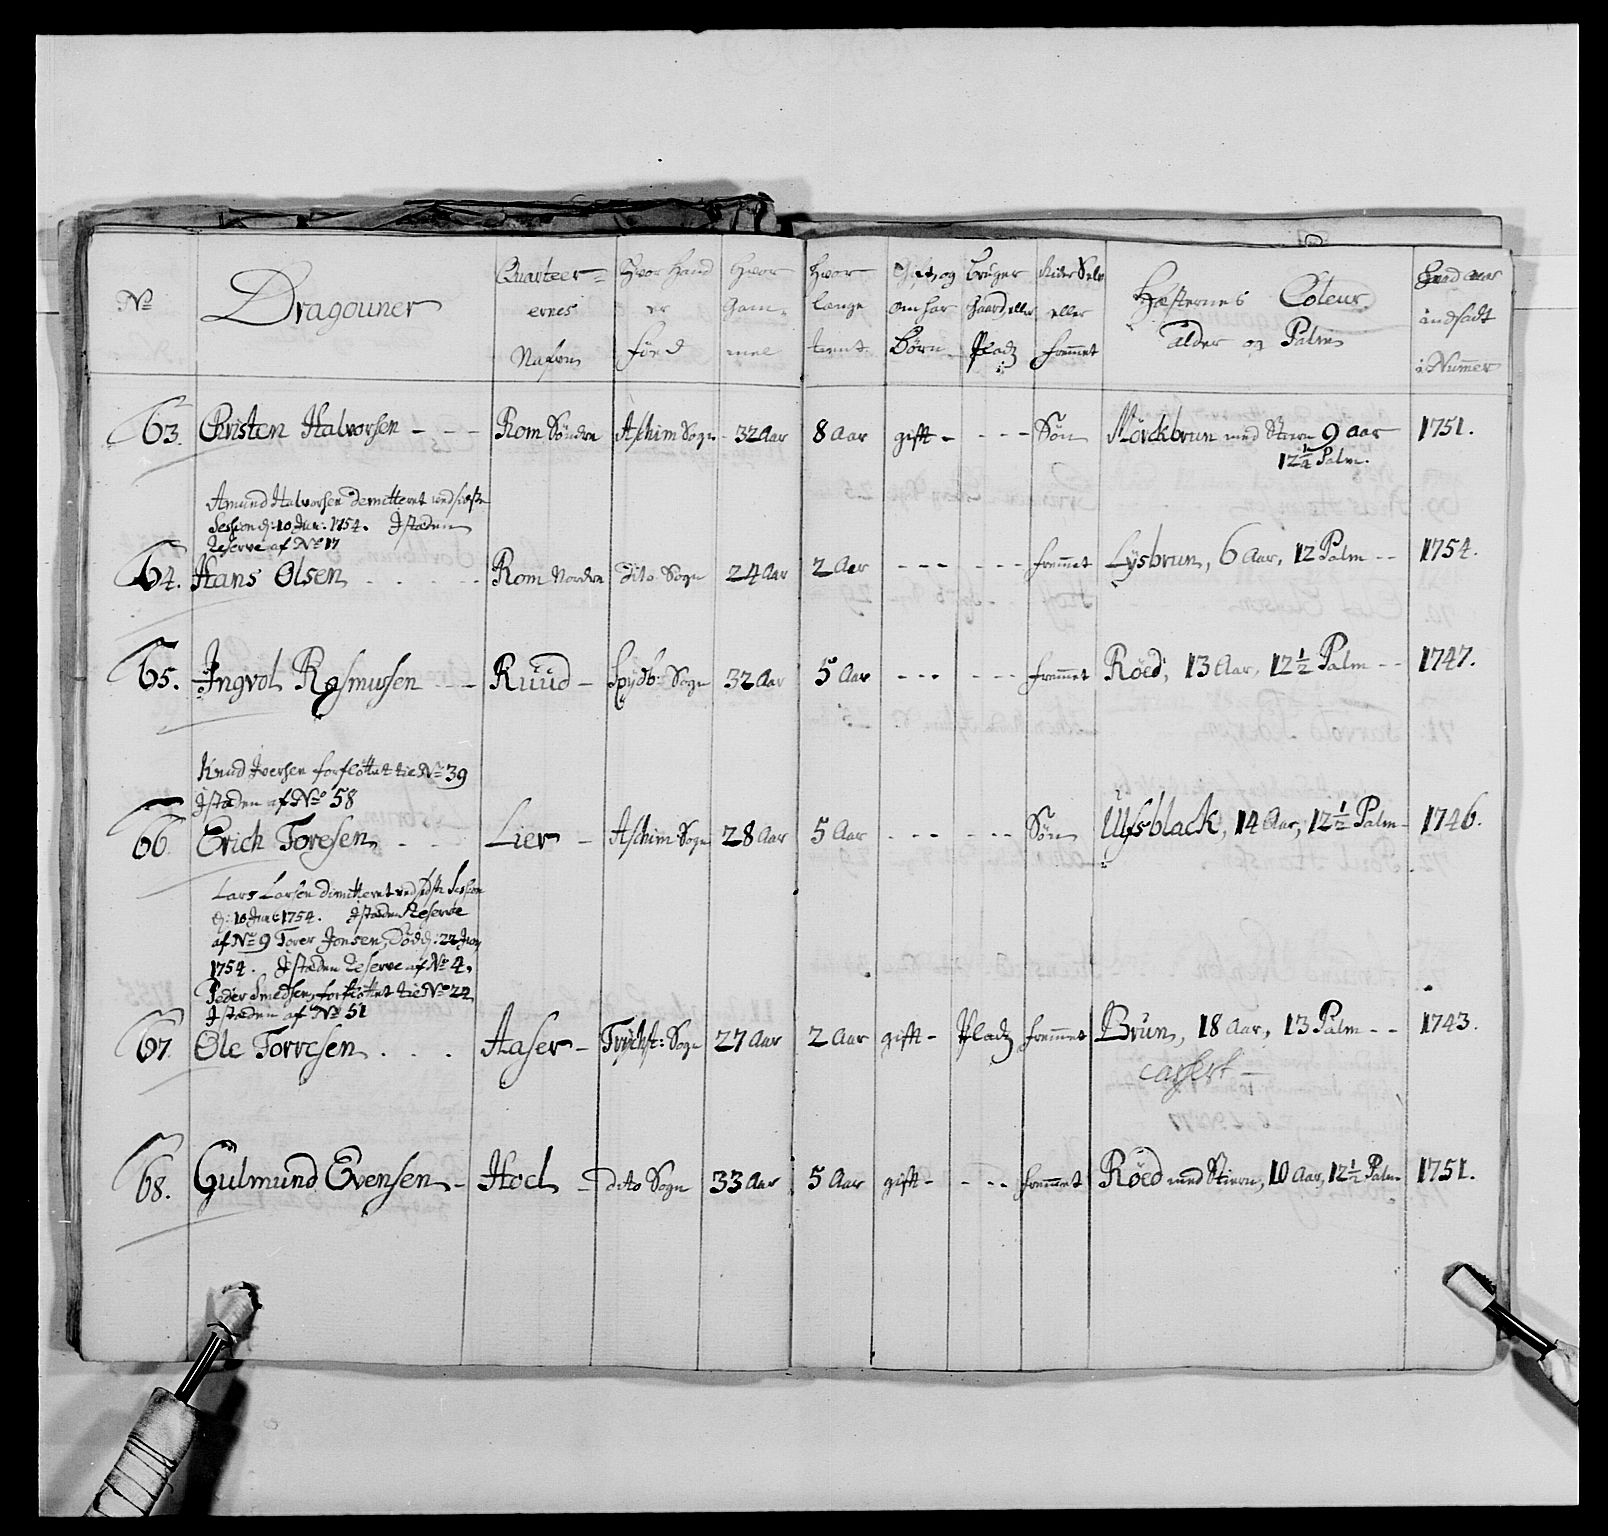 No Dragouner Quarteer= ernes Nafne Hvor Hand er föed Hvor Gam= mel Hvor lange tient Gift, og om har Börn Bruger Gaard, eller Pladz Rider Selv eller fremmet Hæsternes Coleur alder og Palme Hvad aar indsadt i Nummer
63. Christen Halvorsen - - - Rom Søndre Aschim Sogn - 32 Aar 8 Aar gifft - - - - Søn Mörckbrun med Stiern 9 aar 1751.
12 1/4 Palm.
Amund Halvorsen demitteret ved sidste
Session d: 10 Jun: 1754. Jstæden
Reserve af No 17
64. Hans Olsen - - - Rom Nordre dito Sogn 24 Aar 2 Aar - - - - - - fremmet Lysbrun, 6 Aar, 12 Palm - - 1754.
65. Ingvol Rasmusen - - - Ruud - Spydb: Sogn 32 Aar 5 Aar - - - - - - fremmet Röed, 13 Aar, 12 1/2 Palm - - 1747.
Knud Iversen forflöttet til No 39
Jstæden af No 58
66. Erich Toresen - - Lier - Aschim Sogn 28 Aar 5 Aar - - - - - - Søn Ulfsblack, 14 Aar, 12 1/2 Palm - 1746.
Lars Larsen dimitteret ved sidste Session
d: 10 Jun: 1754. Jstæden Reserve
af No 9 Torer Jonsen, Död d: 22 Jun
1754. Jstæden Reserve af No 4.
Peder Smedsen, forflöttet til No 24
Jstæden af No 51
67. Ole Torresen . . . Aaser - Trychst: Sogn 27 Aar 2 Aar gifft - Pladz fremmet Brun, 18 Aar, 13 Palm - - 1743.
Cassert
68. Gulmund Evensen - Hoel - dito Sogn 33 Aar 5 Aar gifft - - - - fremmet Röed med Stiern, 10 Aar, 12 1/2 Palm 1751.